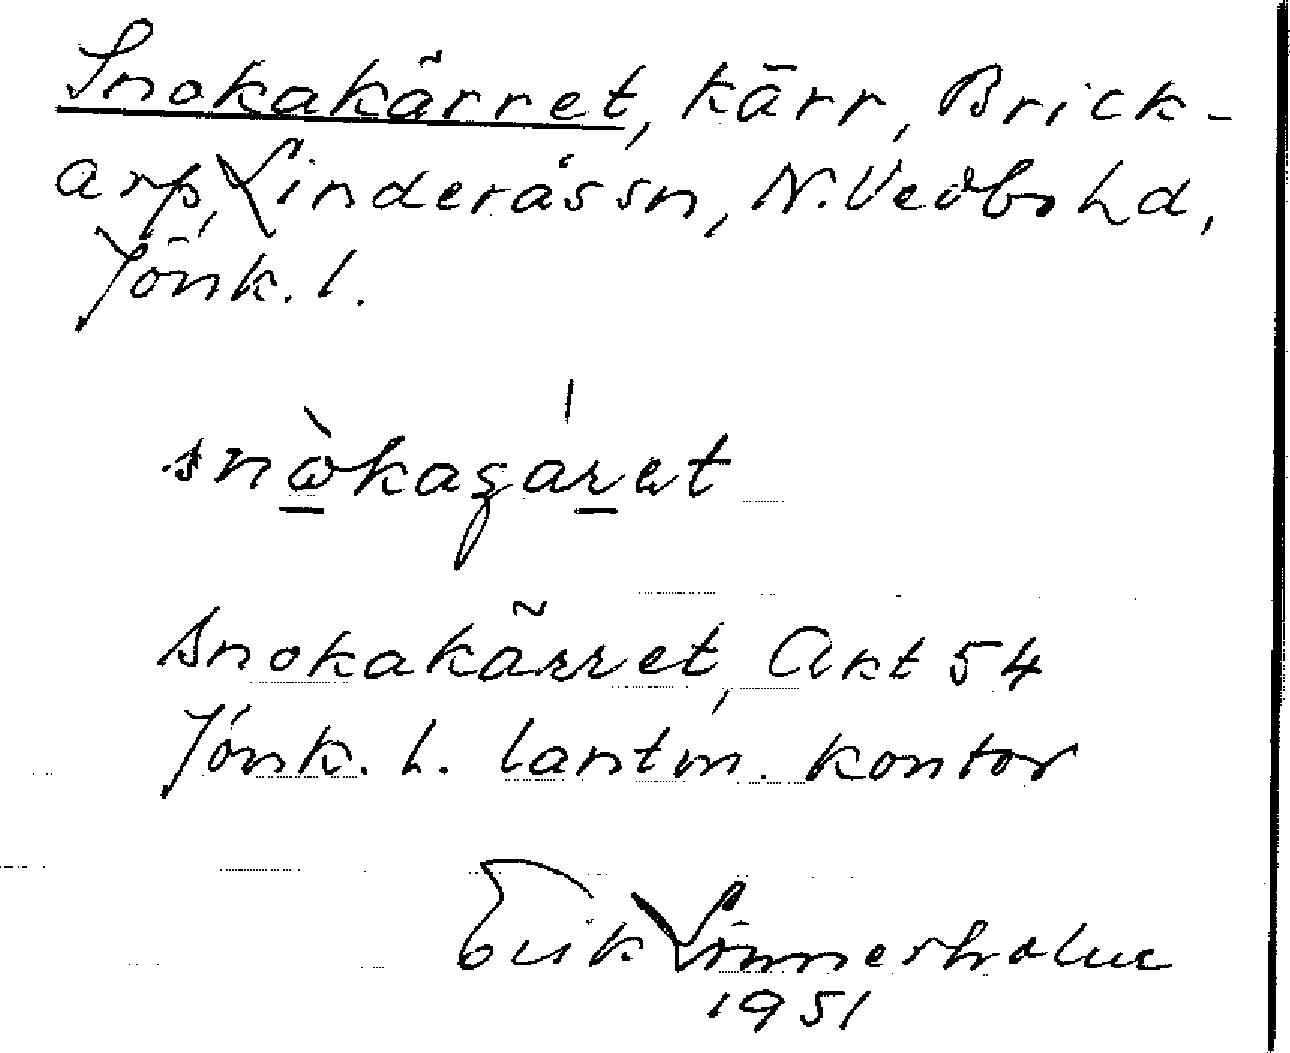 Snokakärret, kärr, Brick-
arp, Linderås sn, N. Vedbo hd,
Jönk. l.
snòkaʒáret
Snokakärret, Akt 54
Jönk. L. lantm. kontor
Erik Linnerholm
1951